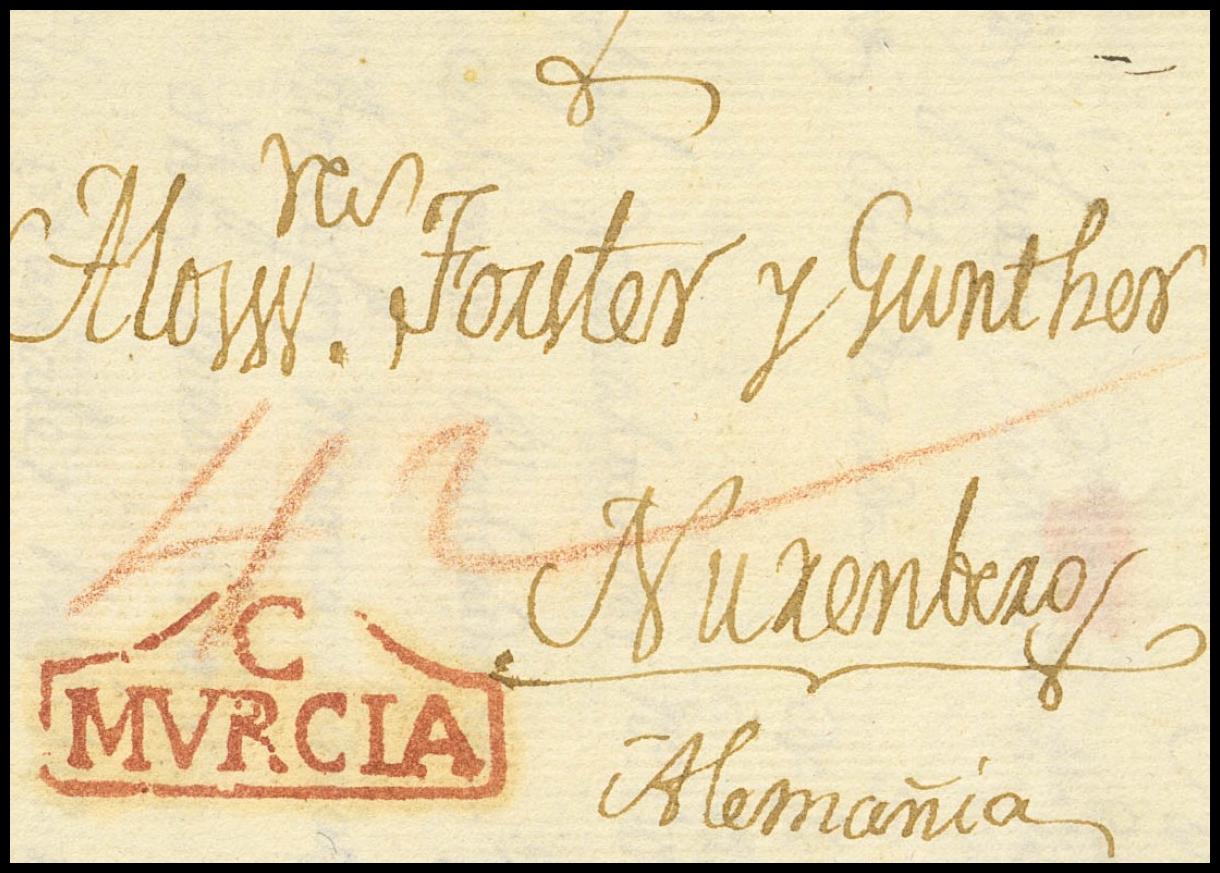 A los SS.res Forster y Gunther
42
Nurenberg
C
MVRCIA
Alemañia